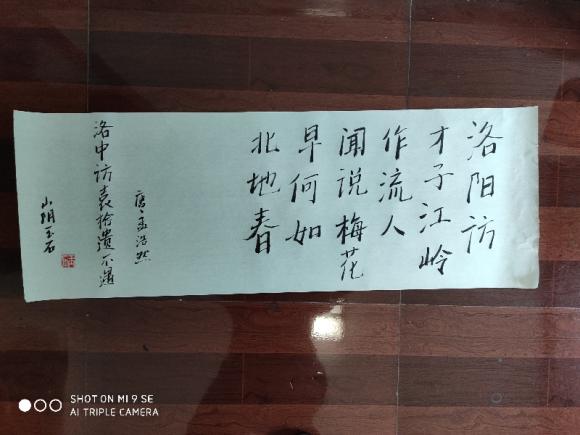 洛阳访
才子江岭
作流人
闻说梅花
早何如
北地春
唐·孟浩然
洛中访袁拾遗不遇
山阴玉石
SHOT ON MI 9 SE
AI TRIPLE CAMERA